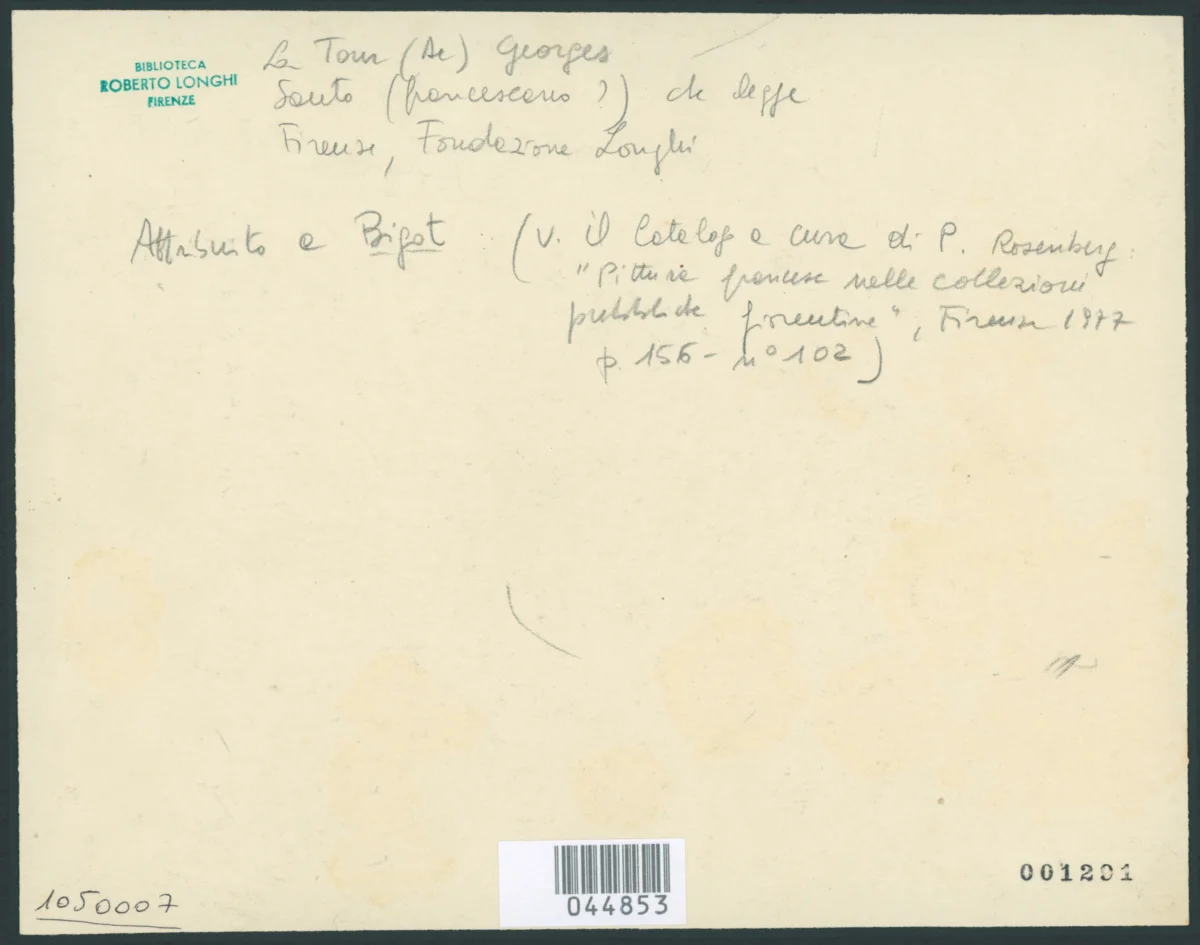 BIBLIOTECA
ROBERTO LONGHI
FIRENZE
La Tour (de) Georges
Santo (francescano ?) che legge
Firenze, Fondazione Longhi
Attribuito a Bigot (v. il Catalogo a cura di P. Rosenberg:
"Pittura francese nelle collezioni
pubbliche fiorentine", Firenze 1977
p. 156 - n° 102)
1050007
044853
001201